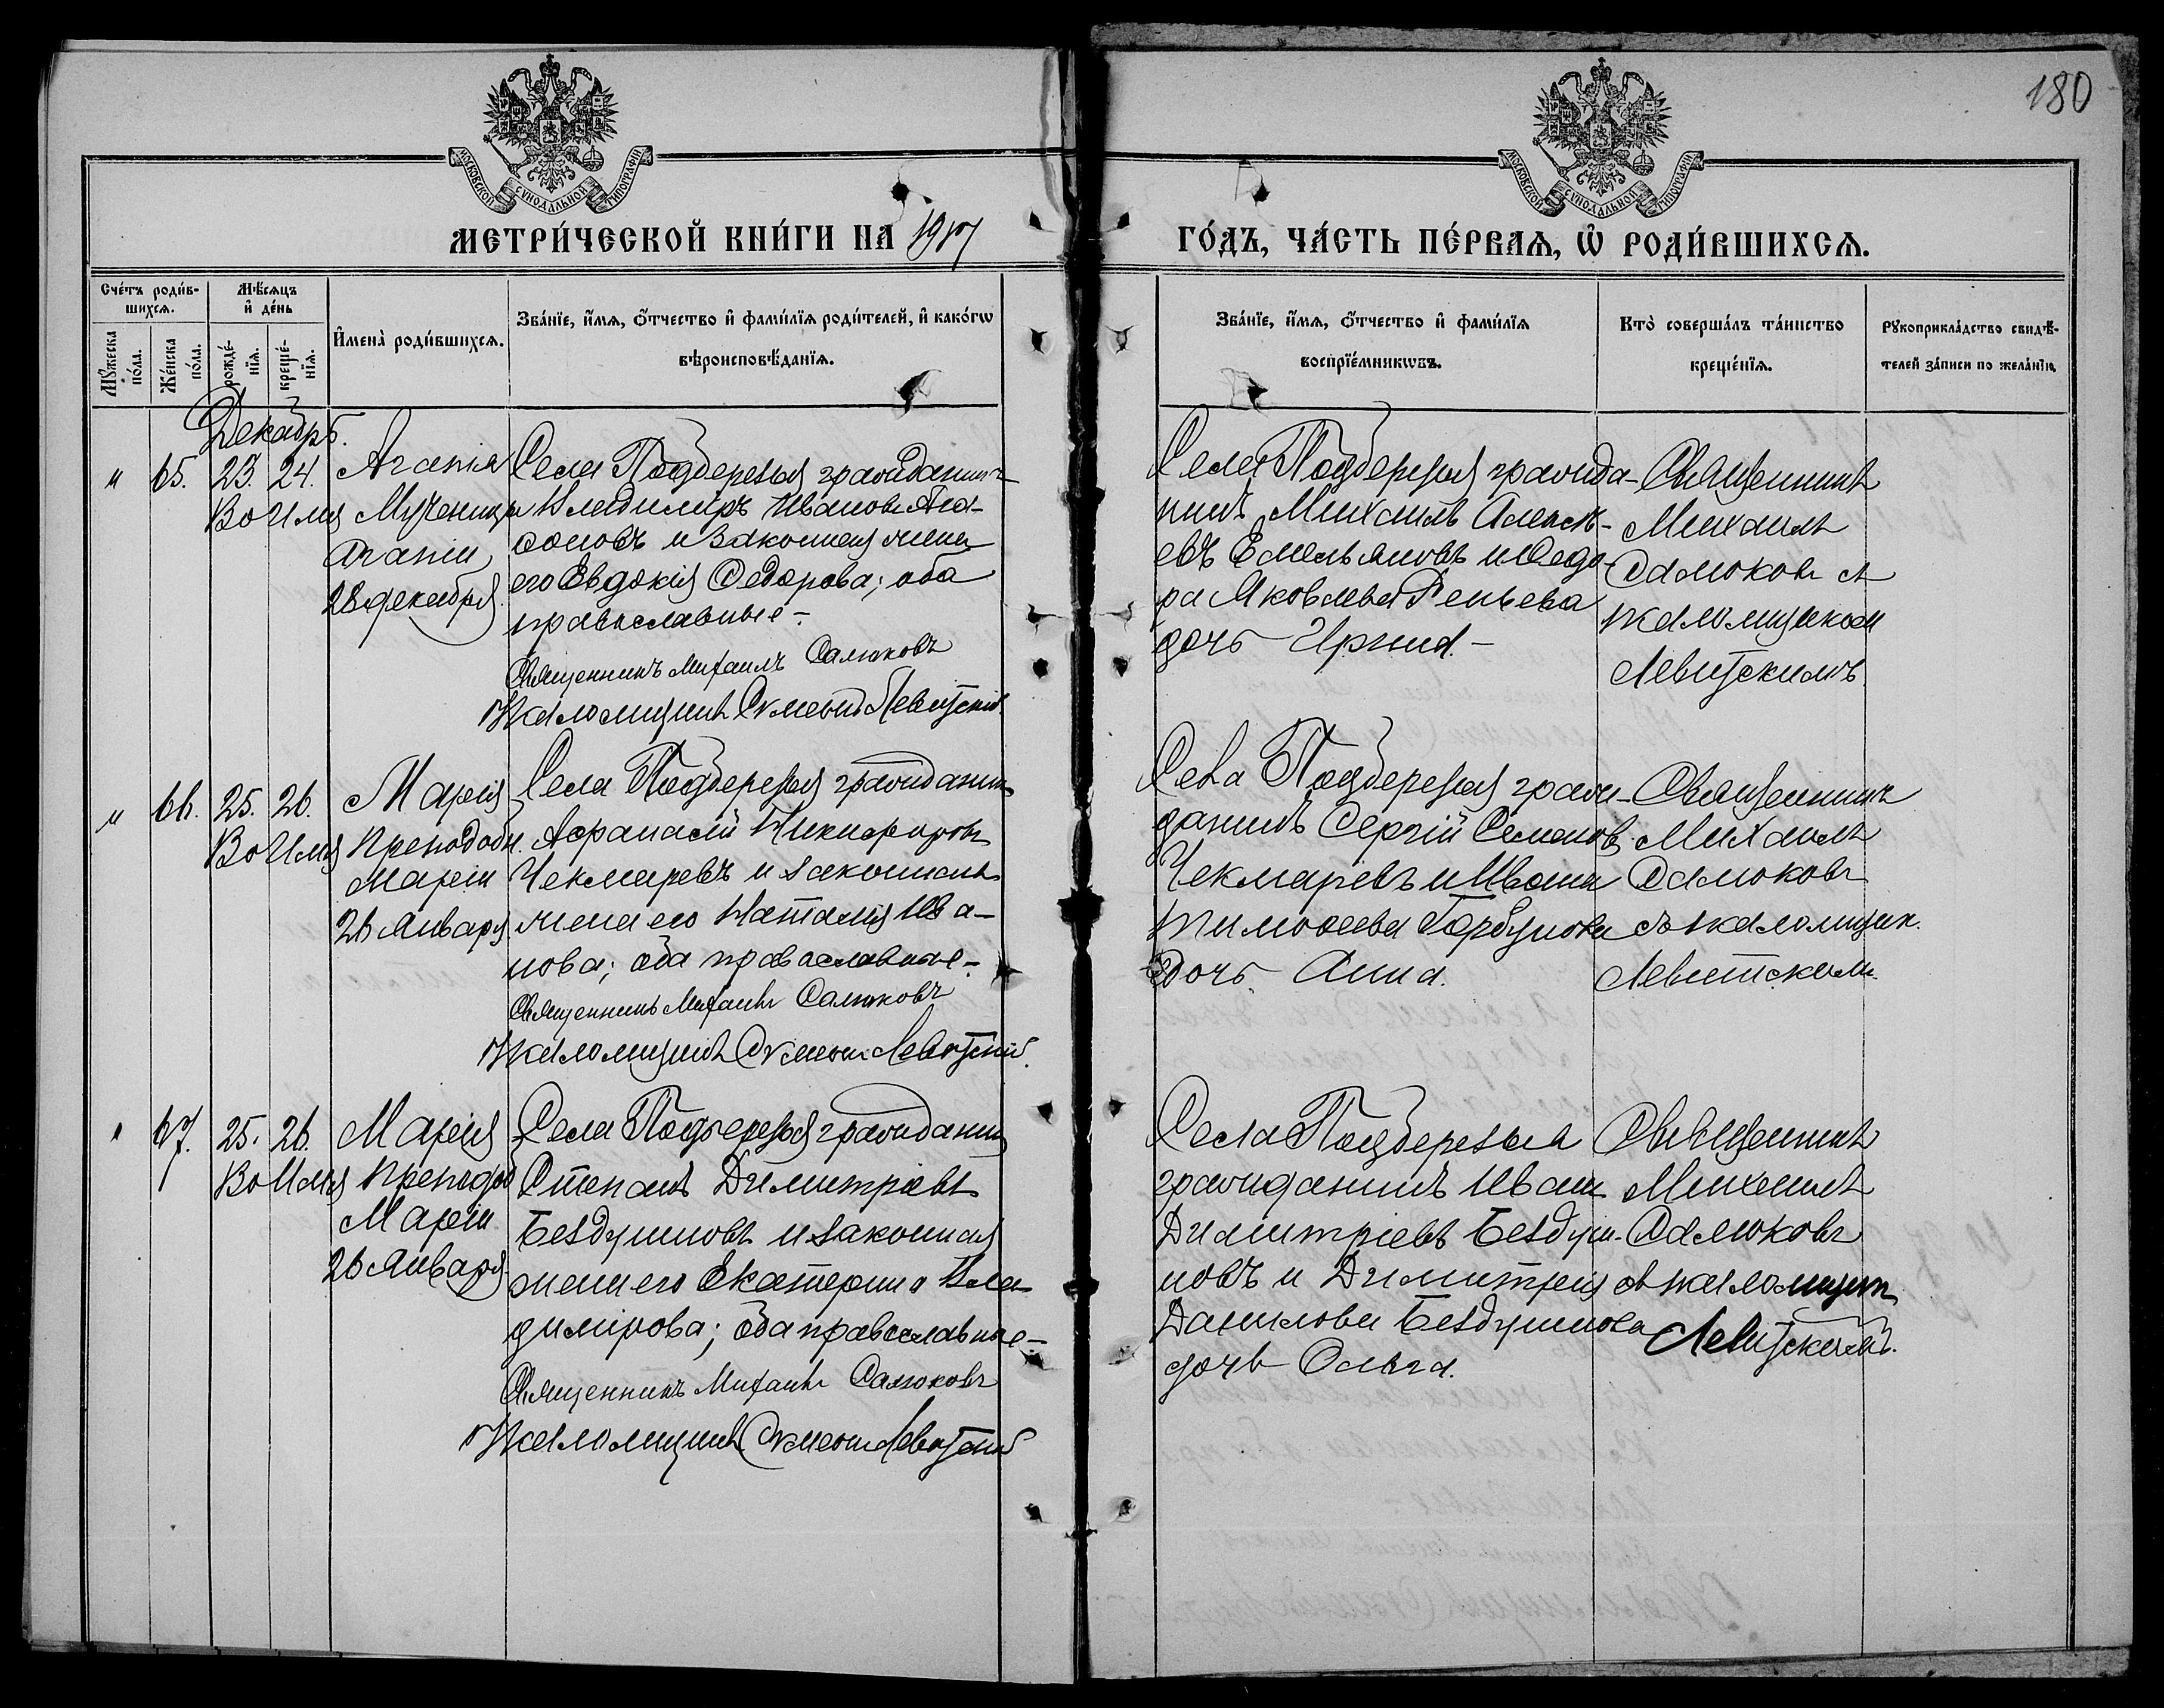 180
МОСКОВСКОЙ СѴНОДАЛЬНОЙ ТИПОГРАФІИ
МОСКОВСКОЙ СѴНОДАЛЬНОЙ ТИПОГРАФІИ
МЕТРИ́ЧЕСКОЙ КНИ́ГИ НА 1917
ГО́ДЪ, ЧА́СТЬ ПЕ́РВАѦ, Ѡ РОДИ́ВШИХСѦ.
Сче́тъ роди́в-
шихсѧ.
Мѣ́сѧцъ
и҆ де́нь
Мꙋ́жеска
по́ла.
Же́нска
по́ла.
рожде́-
нїѧ.
креще́-
нїѧ.
И҆мена̀ роди́вшихсѧ.
Зва́нїе, и҆́мѧ, ѻ҆́тчество и҆ фами́лїѧ роди́телей, и҆ како́гѡ
вѣроисповѣ́данїѧ.
Зва́нїе, и҆́мѧ, ѻ҆́тчество и҆ фами́лїѧ
воспрїе́мникѡвъ.
Кто̀ соверша́лъ та́инство
креще́нїѧ.
Рꙋкоприкла́дство свидѣ́-
телей за́писи по жела́нїю.
Декабрь.
" 65. 23. 24.
Во Имя
Агапія
Мученицы
Агапіи
28 декабря.
Села Подберезья гражданинъ
Владиміръ Ивановъ Ага-
ѳоновъ и законная жена
его Евдокія Ѳедорова; оба
православные.-
Священникъ Михаилъ Салюковъ
Псаломщикъ Симеонъ Левитскій.
Села Подберезья гражда-
нинъ Михаилъ Алексѣ-
евъ Емельяновъ и Ѳедо-
ра Яковлева
дочь Ирина.-
Священникъ
Михаилъ
Салюковъ съ
псаломщиком
Левитскимъ.
" 66. 25. 26.
Во Имя
Марія
Преподобн.
Маріи
26 Января.
Села Подберезья гражданинъ
Аѳанасій Никифоровъ
Чекмаревъ и законная
жена его Наталія Ива-
нова; оба православные-.
Священникъ Михаилъ Салюковъ
Псаломщикъ Симеонъ Левитскій.
Села Подберезья граж-
данинъ Сергій Семеновъ
Чекмаревъ и Ивана
Тимоѳеева Горбунова
дочь Анна.
Священникъ
Михаилъ
Салюковъ
съ псаломщик.
Левитским.
" 67. 25. 26.
Во Имя
Марія
Преподоб
Маріи
26 Января.
Села Подберезья гражданинъ
Степанъ Димитріевъ
Бездушновъ и законная
жена его Екатерина Вла-
димірова; оба православные-
Священникъ Михаилъ Салюковъ
Псаломщикъ Симеонъ Левитскій
Села Подберезья
гражданинъ Иванъ
Димитріевъ Бездуш-
новъ и Димитрія
Данилова Бездушнова
дочь Ольга.
Священникъ
Михаилъ
Салюковъ
съ псаломщик
Левитскимъ.